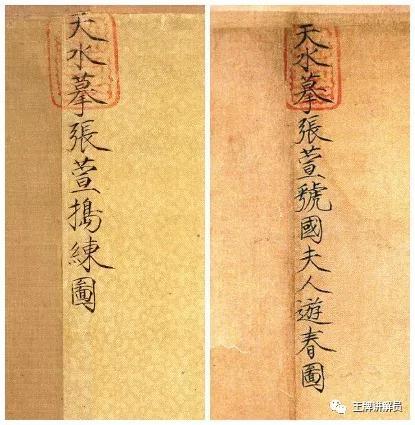 天水摹張萱搗練圖
天水摹張萱虢國夫人遊春圖
王牌讲解员